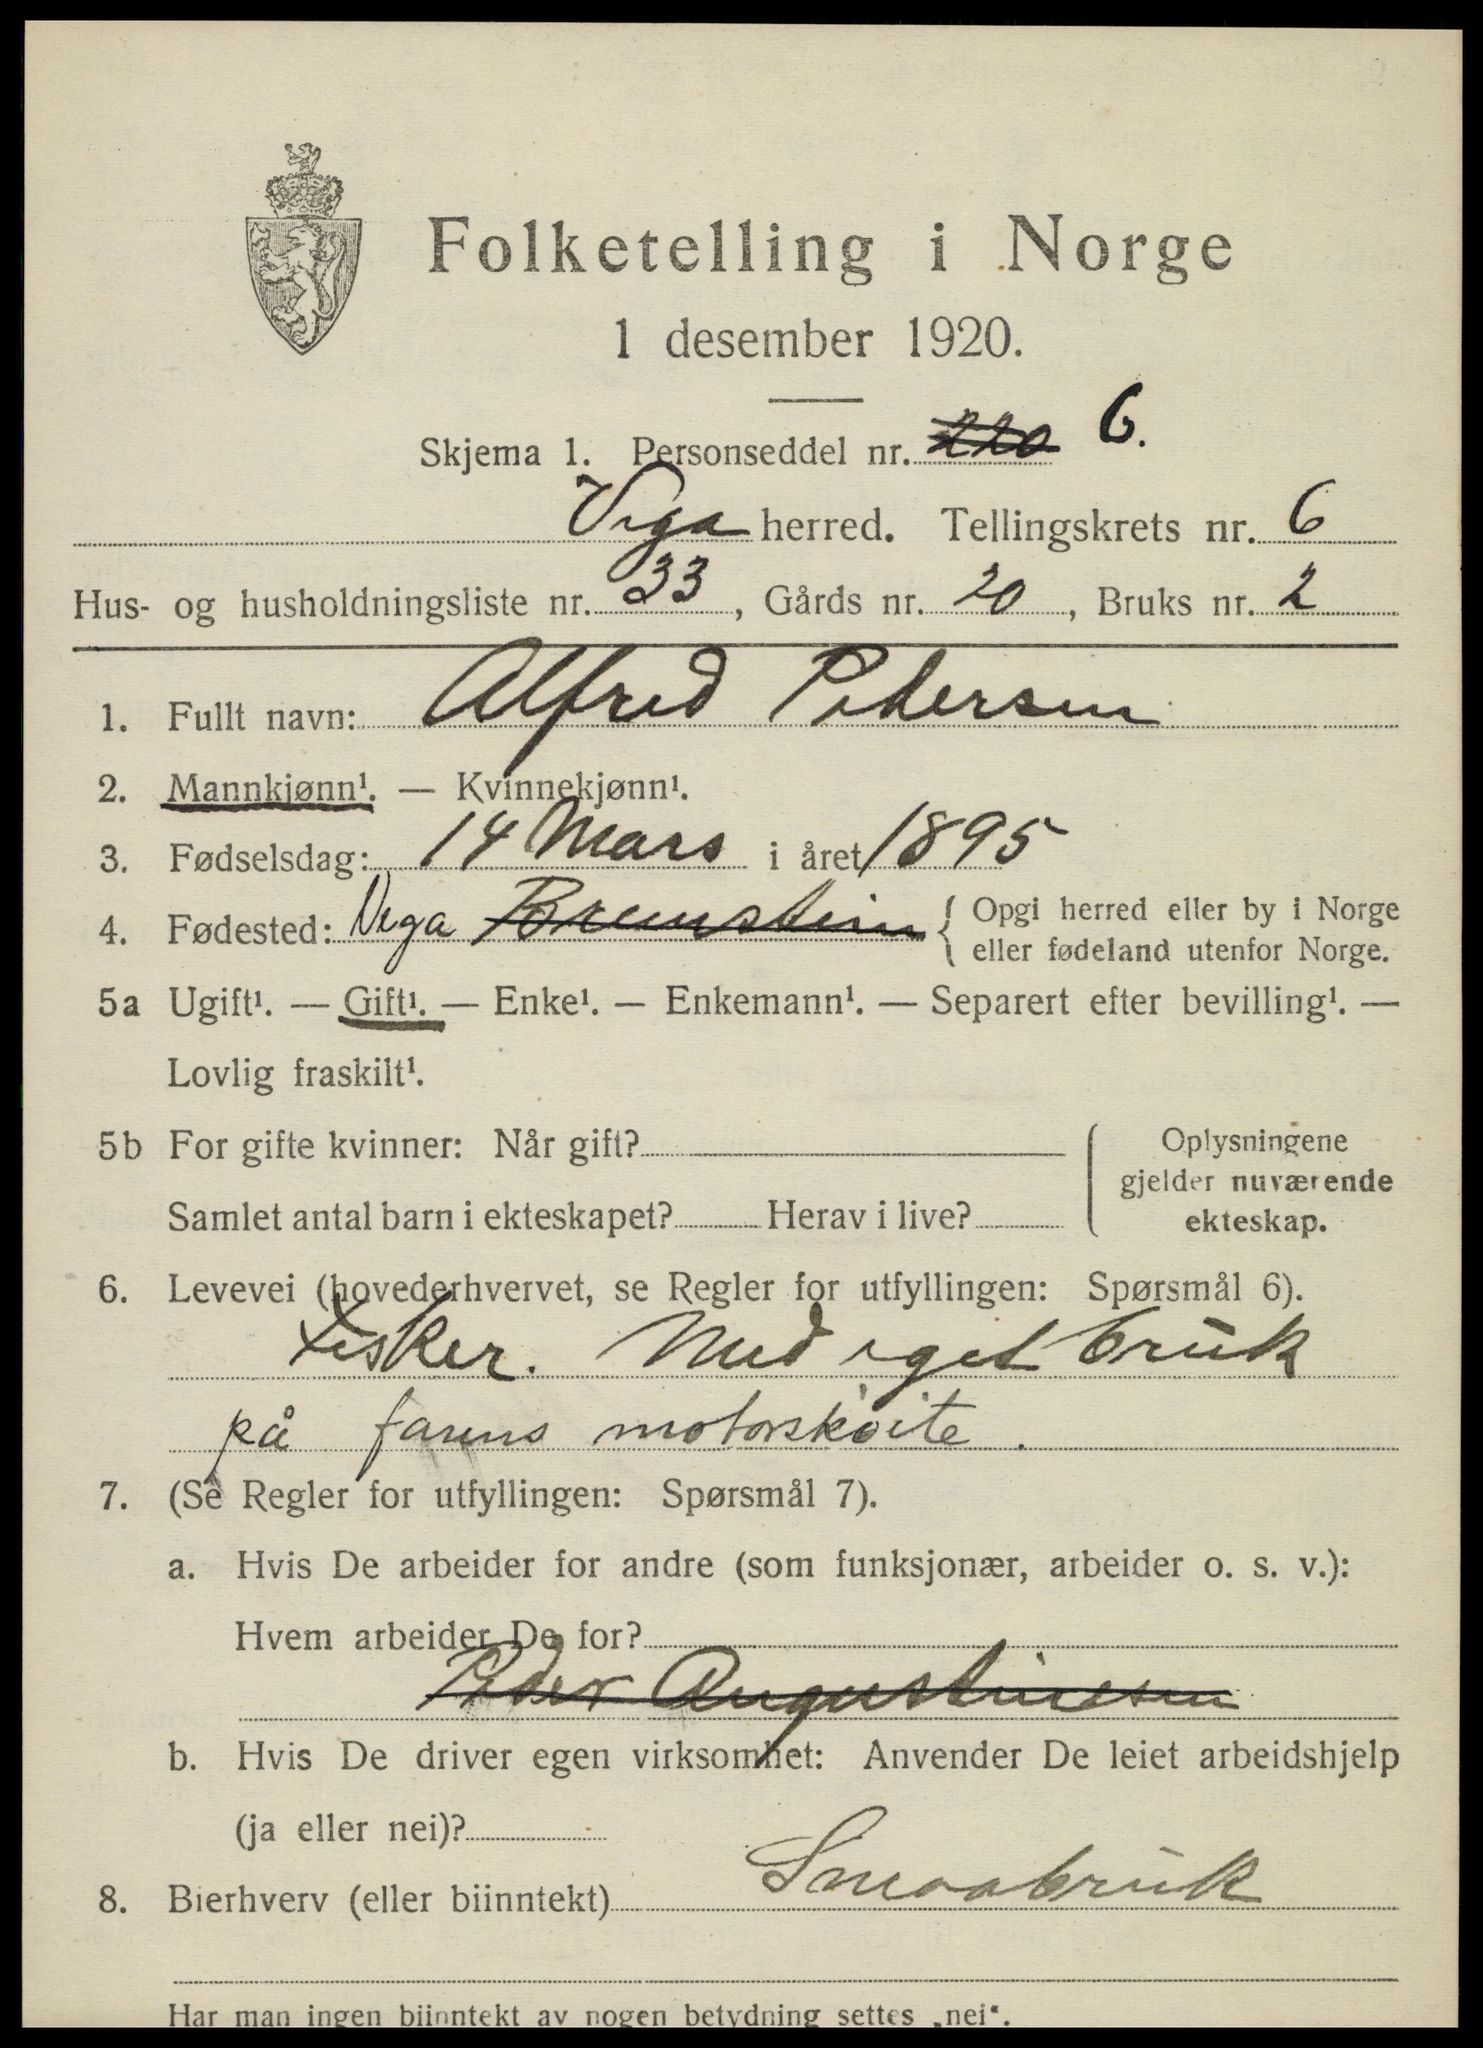 Folketelling i Norge
1 desember 1920.
Skjema 1. Personseddel nr. 220 6.
Vega herred. Tellingskrets nr. 6
Hus- og husholdningsliste nr. 33, Gårds nr. 20, Bruks nr. 2
1. Fullt navn: Alfred Pedersen
2. Mannkjønn¹. — Kvinnekjønn¹.
3. Fødselsdag: 14 Mars i året 1895
4. Fødested: Vega Bremstein { Opgi herred eller by i Norge
eller fødeland utenfor Norge.
5a Ugift¹. — Gift¹. — Enke¹. — Enkemann¹. — Separert efter bevilling¹. —
Lovlig fraskilt¹.
5b For gifte kvinner: Når gift?
Samlet antal barn i ekteskapet? Herav i live?
Oplysningene
gjelder nuværende
ekteskap.
6. Levevei (hovederhvervet, se Regler for utfyllingen: Spørsmål 6).
Fisker. Med eget bruk
på farens motorskøite.
7. (Se Regler for utfyllingen: Spørsmål 7).
a. Hvis De arbeider for andre (som funksjonær, arbeider o. s. v.):
Hvem arbeider De for?
Peder Augustinesen
b. Hvis De driver egen virksomhet: Anvender De leiet arbeidshjelp
(ja eller nei)?
8. Bierhverv (eller biinntekt) Smaabruk
Har man ingen biinntekt av nogen betydning settes „nei“.